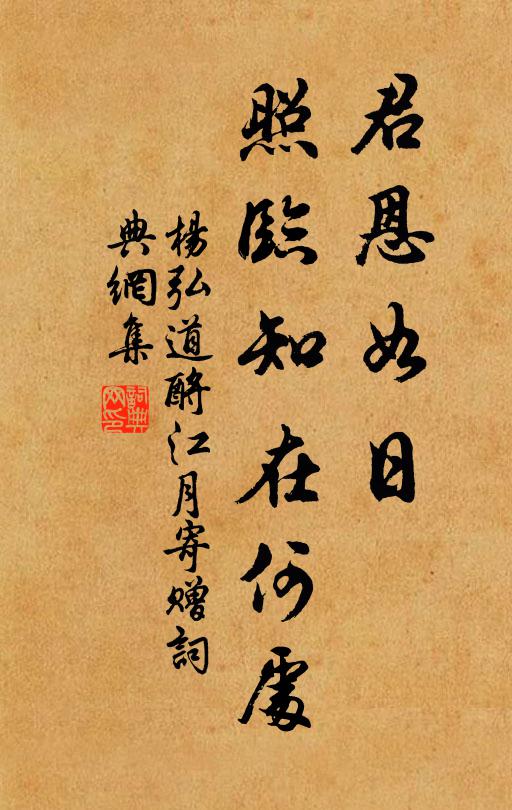 君恩如日
照臨知在何處
楊弘道酹江月寄贈詞
典網集
詞典
网印